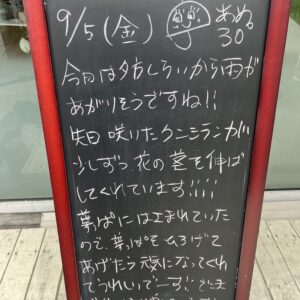 9/5(金) あめ。
30°
今日は夕方くらいから雨が
あがりそうですね!!
先日 咲いたクンシランがい
少しずつ花の茎を伸ば
してくれています!!!!
葉っぱに はさまれていた
ので、葉っぱを ひろげて
あげたら元気になってくれ
てうれしいでーす: